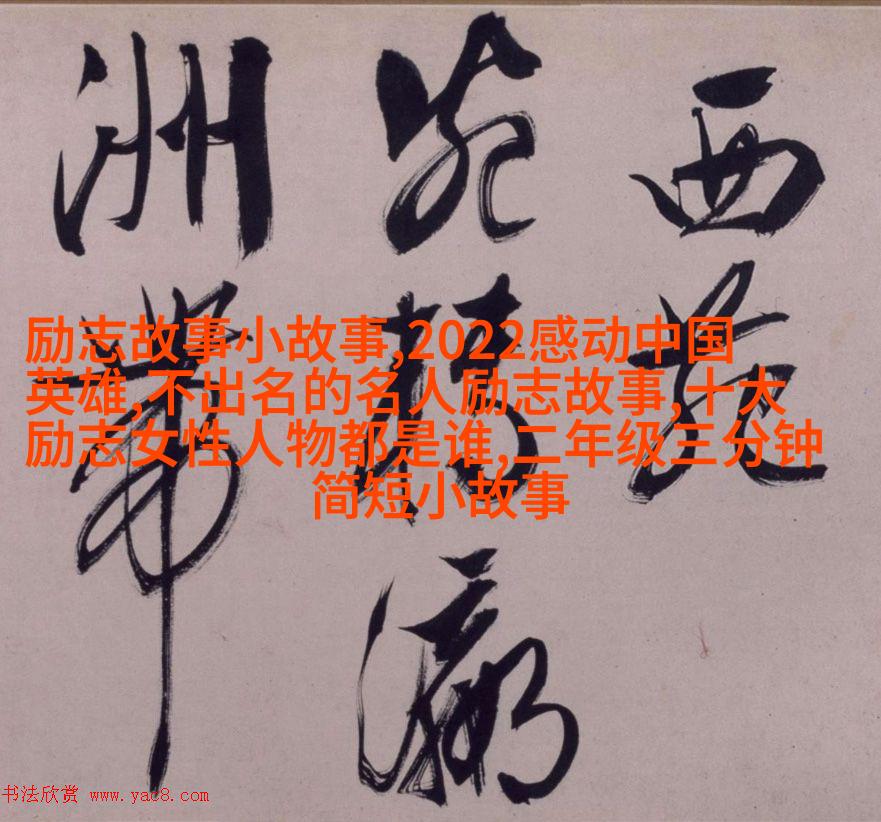 西
瀛
洲帶
励志故事小故事,2022感动中国
英雄,不出名的名人励志故事,十大
励志女性人物都是谁,二年级三分钟
简短小故事
书法欣赏 www.yac8.com